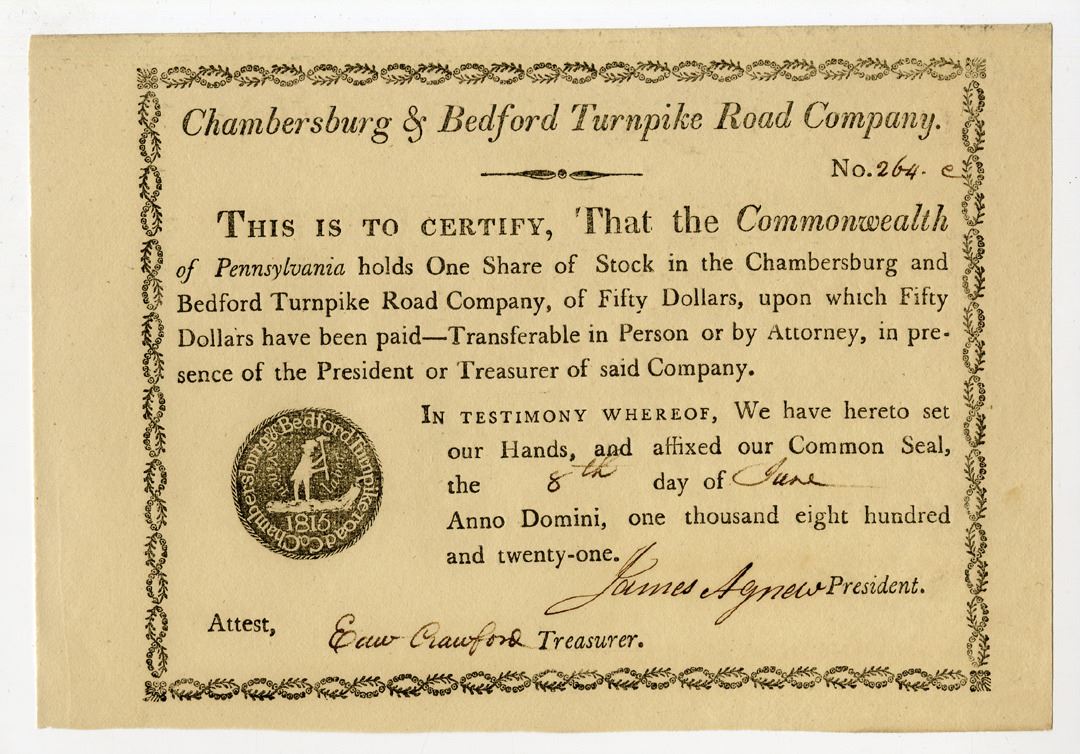 Chambersburg & Bedford Turnpike Road Company.
No. 264. e
THIS IS TO CERTIFY, That the Commonwealth
of Pennsylvania holds One Share of Stock in the Chambersburg and
Bedford Turnpike Road Company, of Fifty Dollars, upon which Fifty
Dollars have been paid—Transferable in Person or by Attorney, in pre-
sence of the President or Treasurer of said Company.
IN TESTIMONY WHEREOF, We have hereto set
our Hands, and affixed our Common Seal,
the 8th day of June
Anno Domini, one thousand eight hundred
and twenty-one.
James Agnew President.
Attest,
Edw Crawford Treasurer.
Chambersburg & Bedford Turnpike road Co.
1815